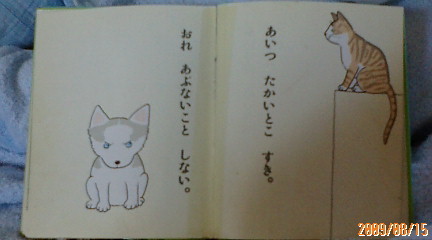 あいつ たかいとこ すき。
おれ あぶないこと しない。
2009/08/15